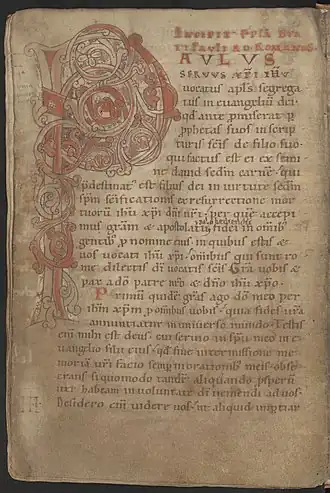 INCIPIT EPTA BEA
TI PAULI AD ROMANOS
PAULUS
SERVUS XPI IHU
vocatus apls segrega
tus in evangelium dei
qd ante promiserat per
prophetas suos in scrip
turis scis de filio suo
qui factus est ei ex semi
ne david sedm carne qui
pdestinatus est filius dei in virtute sedm
spm scificationis ex resurrectione mor
tuorum ihu xpi dni nri per que accepi
mus gram & apostolatu ad obediendu fidei in omnib
gentib p nomine eius in quibus estis &
vos vocati ihu xpi omnibus qui sunt ro
me dilectis di vocatis scis Gra vobis &
pax a do patre nro & dno ihu xpo
Primum quide gras ago do meo per
ihm xpm p omnibus vobis quia fides vra
annuntiatur in universo mundo Testis
eni mihi est deus cui servio in spu meo in
evangelio filii eius qd sine intermissione me
moria vri facio semp in orationib meis obse
crans si quomodo tande aliquando psperu
iter habeam in voluntate di veniendi ad vos
Desidero eni videre vos ut aliquid inptiar